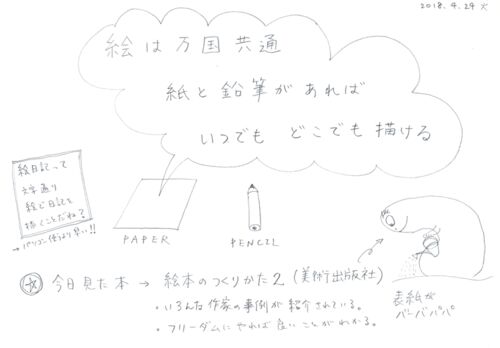 2018.4.24 火
絵は万国共通
紙と鉛筆があれば
いつでも どこでも描ける
絵日記って
文字通り
絵で日記を
描くことだね?
→パソコン使うより早い!!
PAPER
PENCIL
今日見た本 → 絵本のつくりかた2 (美術出版社)
・いろんな作家の事例が紹介されている。
・フリーダムにやれば良いことがわかる。
表紙が
バーバパパ